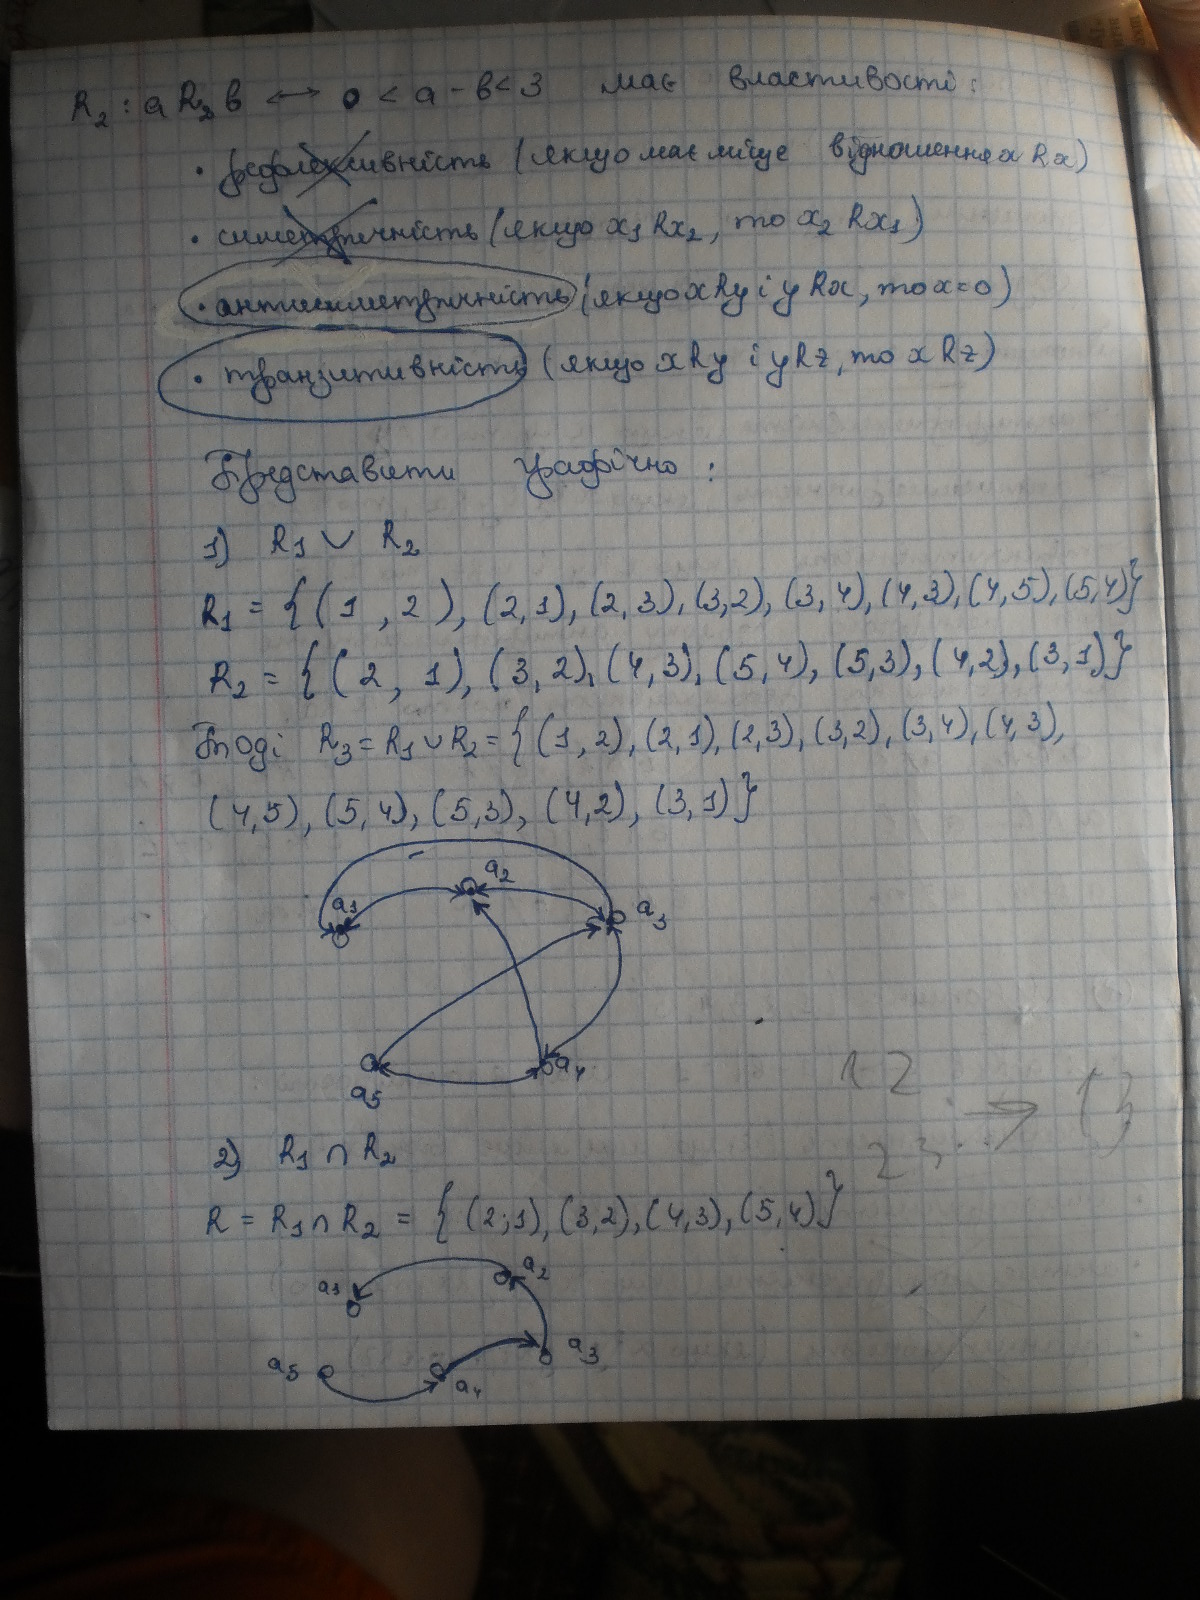 R₂ : a R₂ b ↔ 0 < a - b < 3 має властивості:
• рефлексивність (якщо має місце відношення x R x)
• симетричність (якщо x₁ R x₂, то x₂ R x₁)
• антисиметричність (якщо x R y і y R x, то x = 0)
• транзитивність (якщо x R y і y R z, то x R z)
Представити графічно :
1) R₁ ∪ R₂
R₁ = {(1 , 2), (2,1), (2,3), (3,2), (3,4), (4,3), (4,5), (5,4)}
R₂ = {(2 , 1), (3,2), (4,3), (5,4), (5,3), (4,2), (3,1)}
Тоді R₃ = R₁ ∪ R₂ = {(1,2), (2,1), (2,3), (3,2), (3,4), (4,3),
(4,5), (5,4), (5,3), (4,2), (3,1)}
a₁ a₂ a₃
a₅ a₄
1 2
2 3 → 13
2) R₁ ∩ R₂
R = R₁ ∩ R₂ = {(2;1), (3,2), (4,3), (5,4)}
a₁ a₂
a₅ a₄ a₃